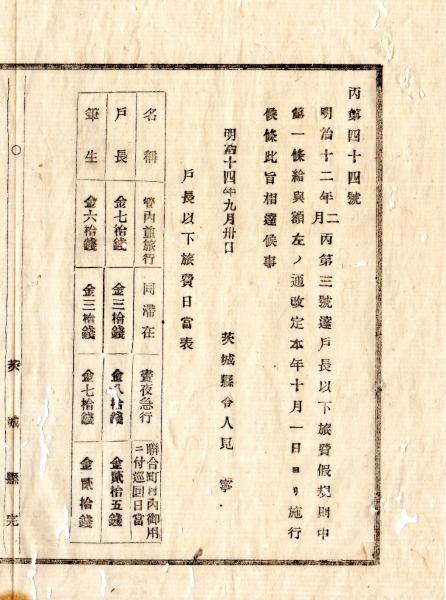 丙第四十四號
明治十二年二月丙第三號達戶長以下旅費假規則中
第一條給與額左ノ通改定本年十月一日ヨリ施行
候條此旨相達候事
明治十四年九月卅日
茨城縣令人見寧
戶長以下旅費日當表
名稱 管內並旅行 同滯在 晝夜急行 聯合町村內御用ニ付巡回日當
戶長 金七拾錢 金三拾錢 金八拾錢 金貳拾五錢
筆生 金六拾錢 金三拾錢 金七拾錢 金貳拾錢
茨城縣